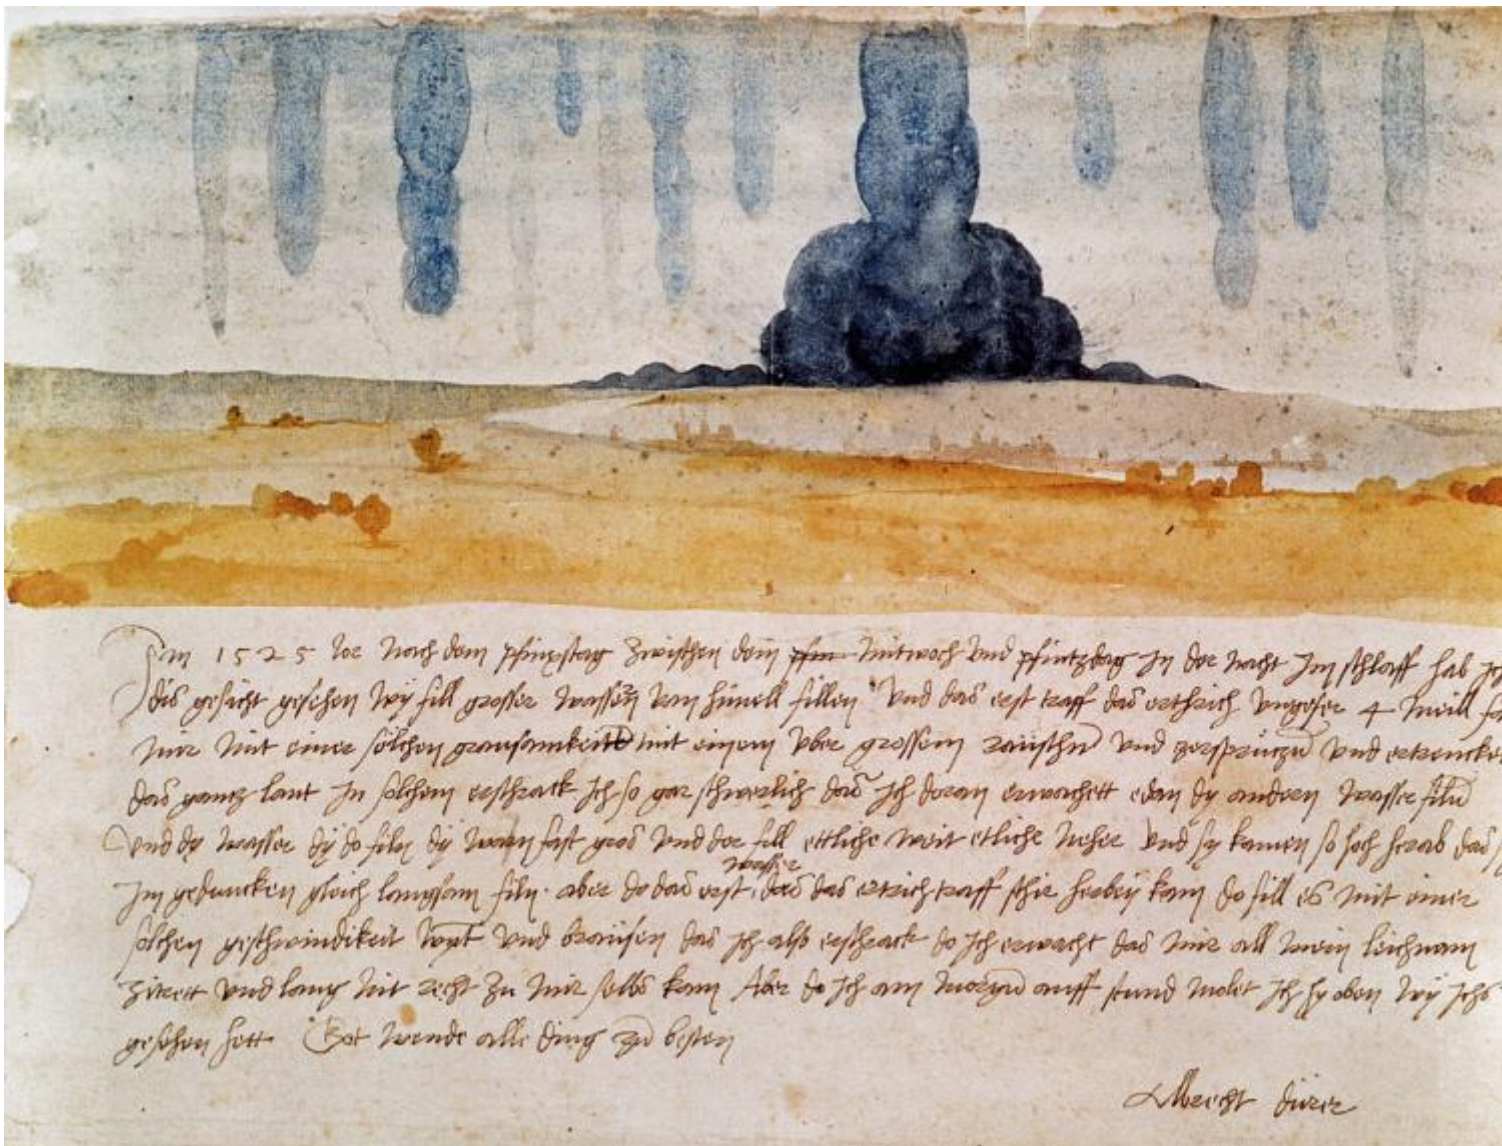 Im 1525 Jor nach dem pfinxstag zwischen dem pfin Mitwoch und pfintzdag in der nacht im schlaff hab ich
dis gesicht gesehen wy fill grosser wassern vom himell fillen Und das erst traff das erthrich ungefer 4 meill fan
mir mit einer solchen grausamkeitt mit einem uber grossem raüschn und zersprützn und ertrencket
das gantz lant In solchem erschrack ich so gar schwerlich das ich doran erwachett edan dy andern wasser filn
Und dy wasser dy do filn dy warn fast gros und der fill ettliche weit etliche neher und sy kamen so hoch herab das sy
im gedancken gleich langsam filn aber do das erst wasser das das ertrich traff schir herbey kam do fill es mit einer
solchen geschwindikeit wynt und braüsen das ich also erschrack do ich erwacht das mir all mein leichnam
zitrett und lang nit recht zu mir selbs kam Aber do ich am morgn auff stund molet ich hy oben wy ichs
gesehen hett Got wende alle ding zu besten
Albrecht dürer